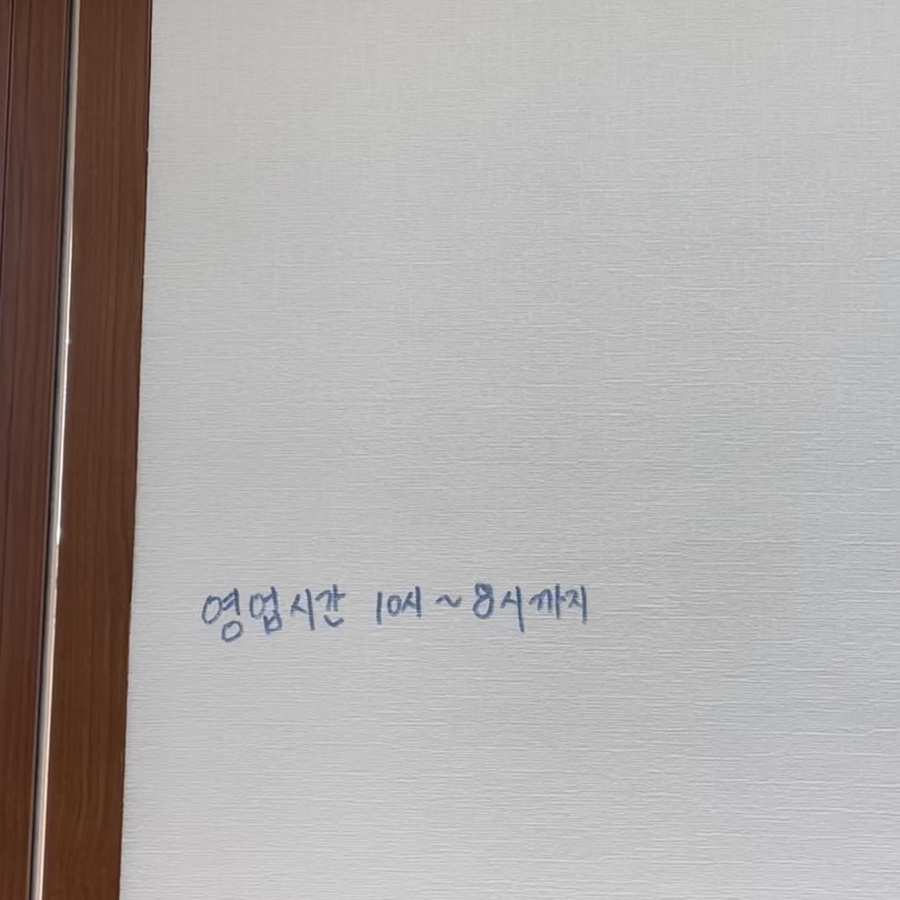 영업시간 10시~8시까지